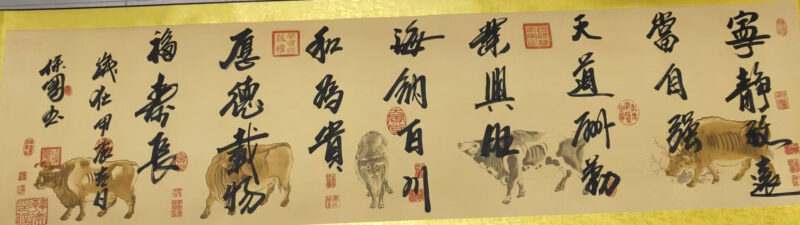 寧静致遠
當自强
天道酬勤
業興旺
海納百川
和為貴
厚德載物
福壽長
歲在甲辰吉日
保國書